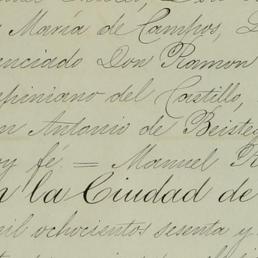 María de Campos,
enciado Don Ramon
piniano del Castillo,
n Antonio de Beisteg
oy fé. = Manuel R
n la Ciudad de
mil ochocientos sesenta y